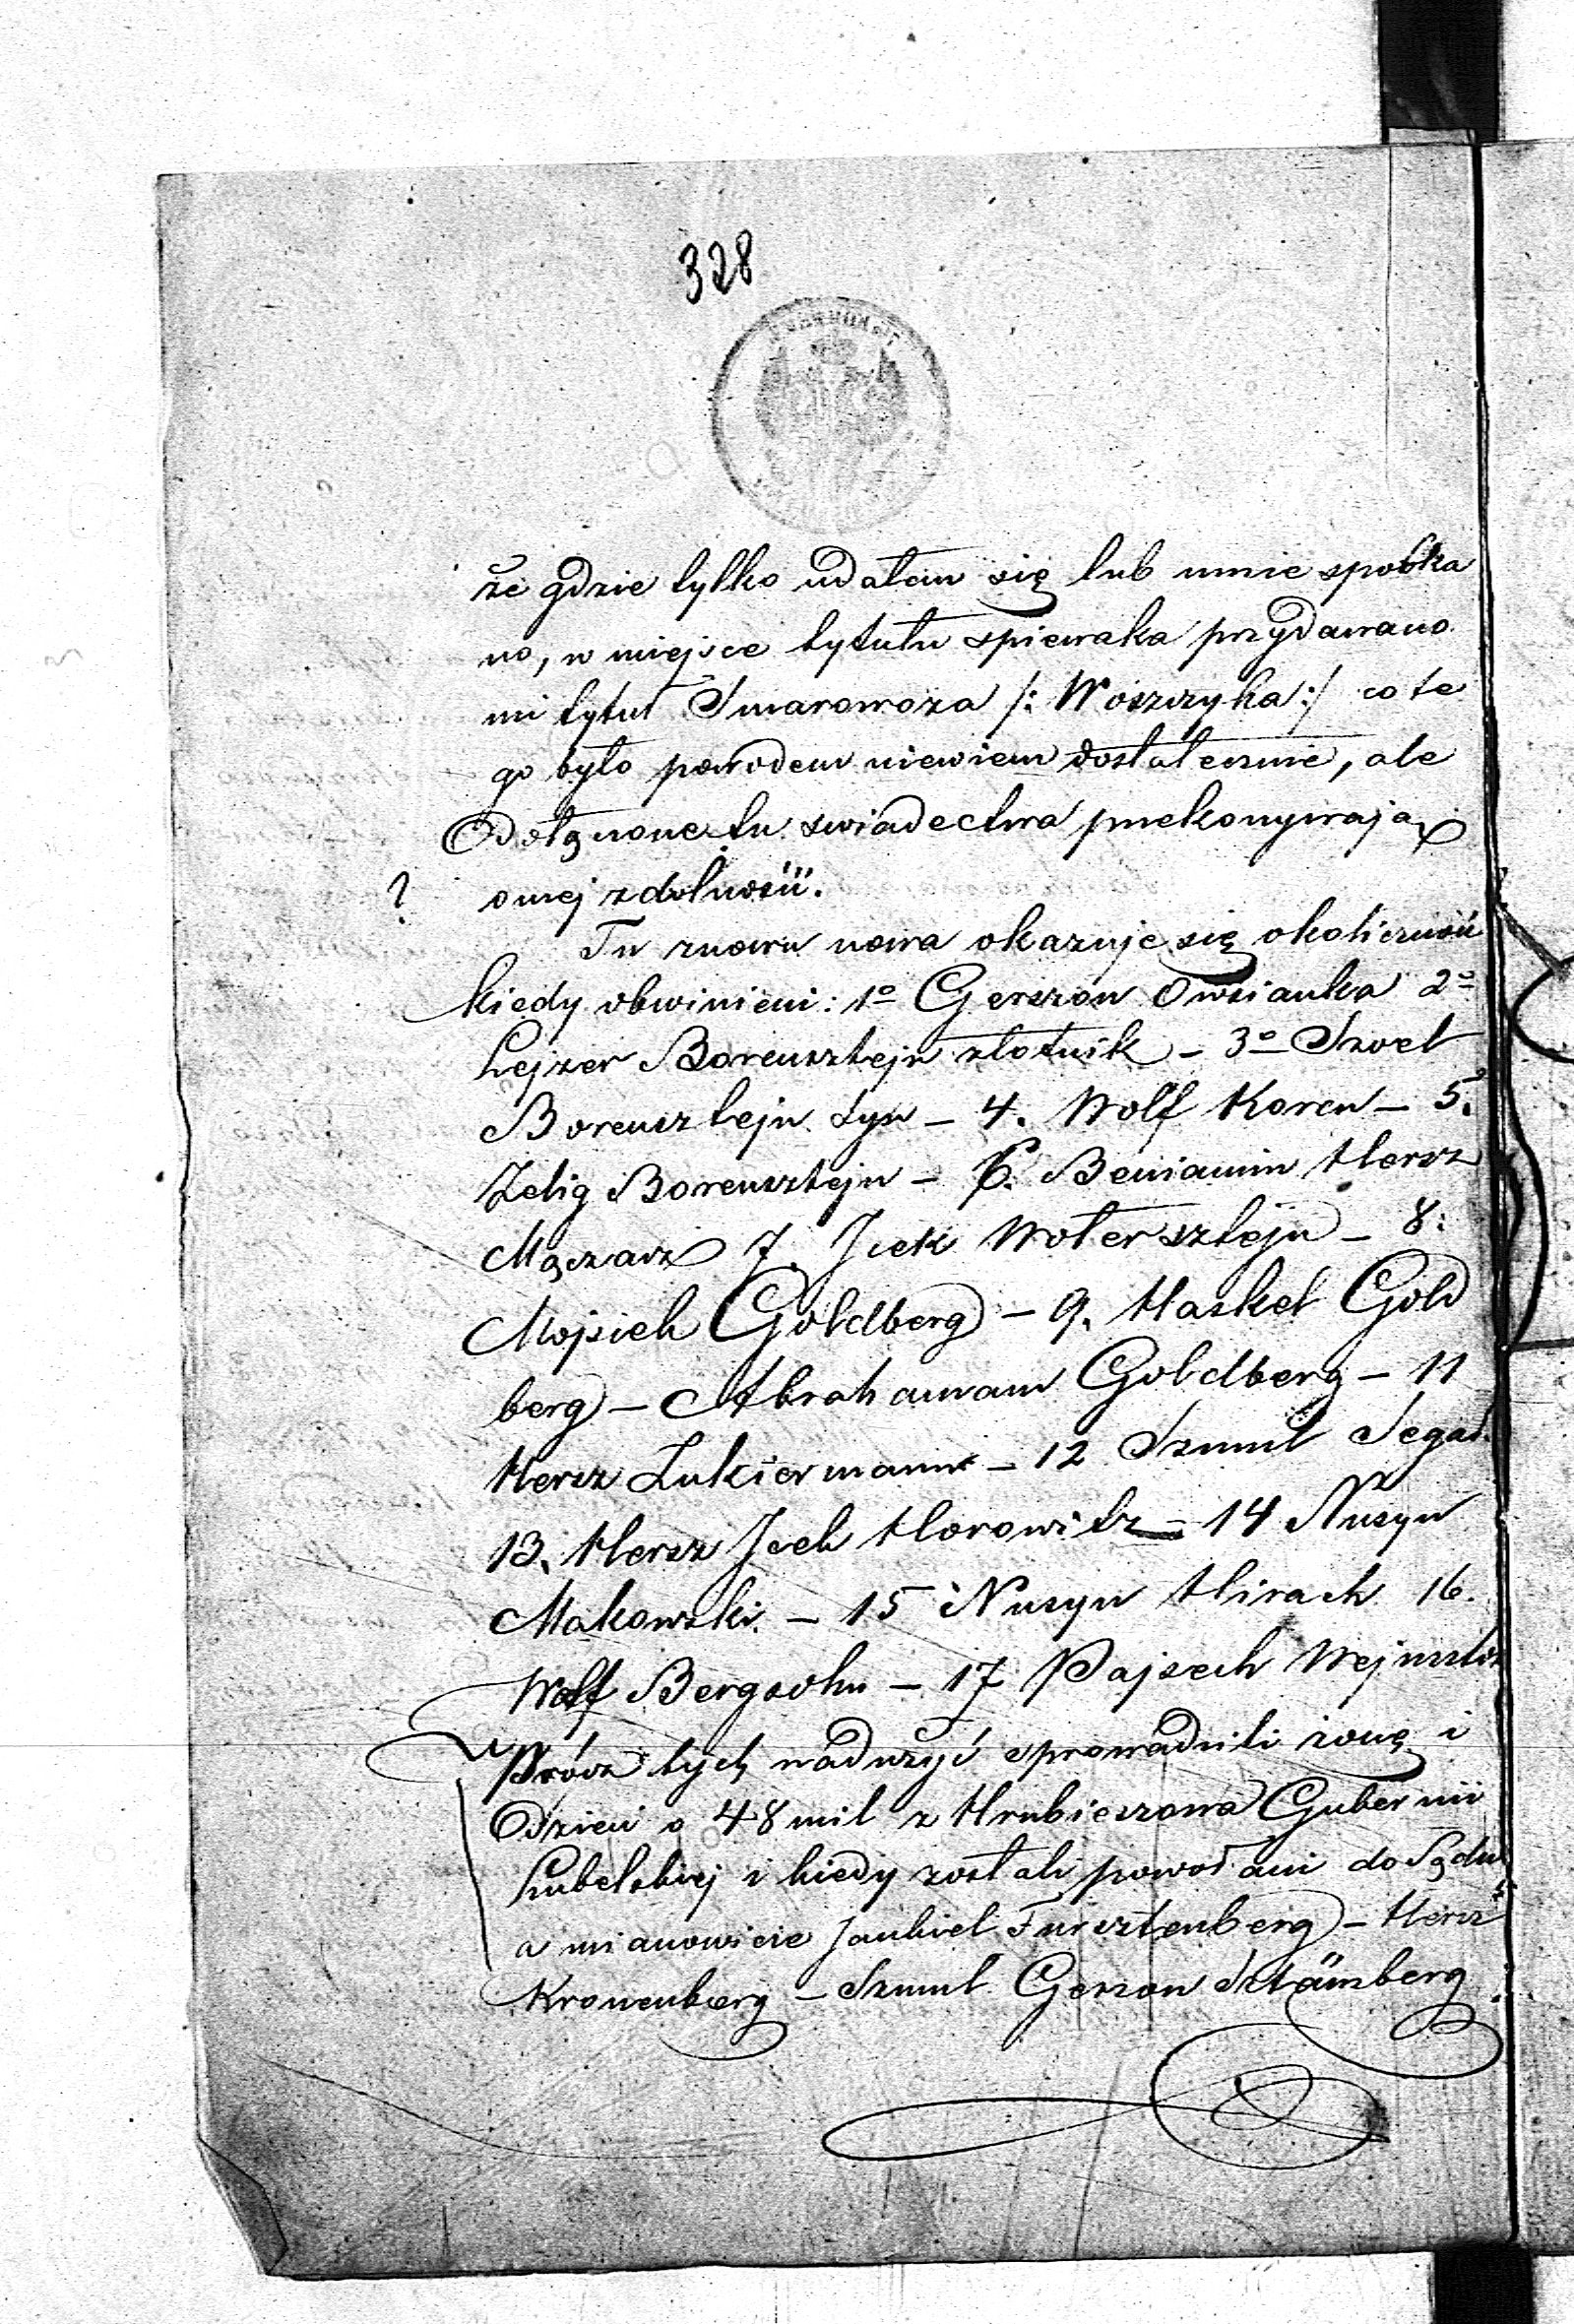 328
że gdzie tylko udałem się lub mnie spotka
no, w miejsce tytułu spiewaka przydawano
mi tytuł Smarowoza /: Woszczyka :/ co te
go było powodem niewiem dostatecznie, ale
dołączone tu swiadectwa przekonywają
? o mej zdolności.
Tu znowu nowa okazuje się okoliczność
kiedy obwinieni: 1o Gerszon Owsianka 2o
Lejzer Borensztejn złotnik – 3o Szoel
Borensztejn syn – 4. Wolf Koren – 5.
Zelig Borensztejn – 6. Beniamin Hersz
Mączarz 7. Icek Wolersztejn – 8.
Mojsieh Goldberg – 9. Haskel Gold
berg – Abrahamam Goldberg – 11
Hersz Lukiermann – 12 Szmul Segal.
13. Hersz Iceh Horowitz – 14 Nusyn
Makowski. – 15 Nusyn Hirach 16.
Wolf Bergsohn – 17 Pajsech
Prócz tych nadużyć sprowadzili żonę i
dzieci o 48 mil z Hrubieszowa Gubernii
Lubelskiej i kiedy zostali powołani do Sądu
a mianowicie Jankiel Fursztenberg – Hersz
Kronenberg – Szmul Gerson Sztämberg